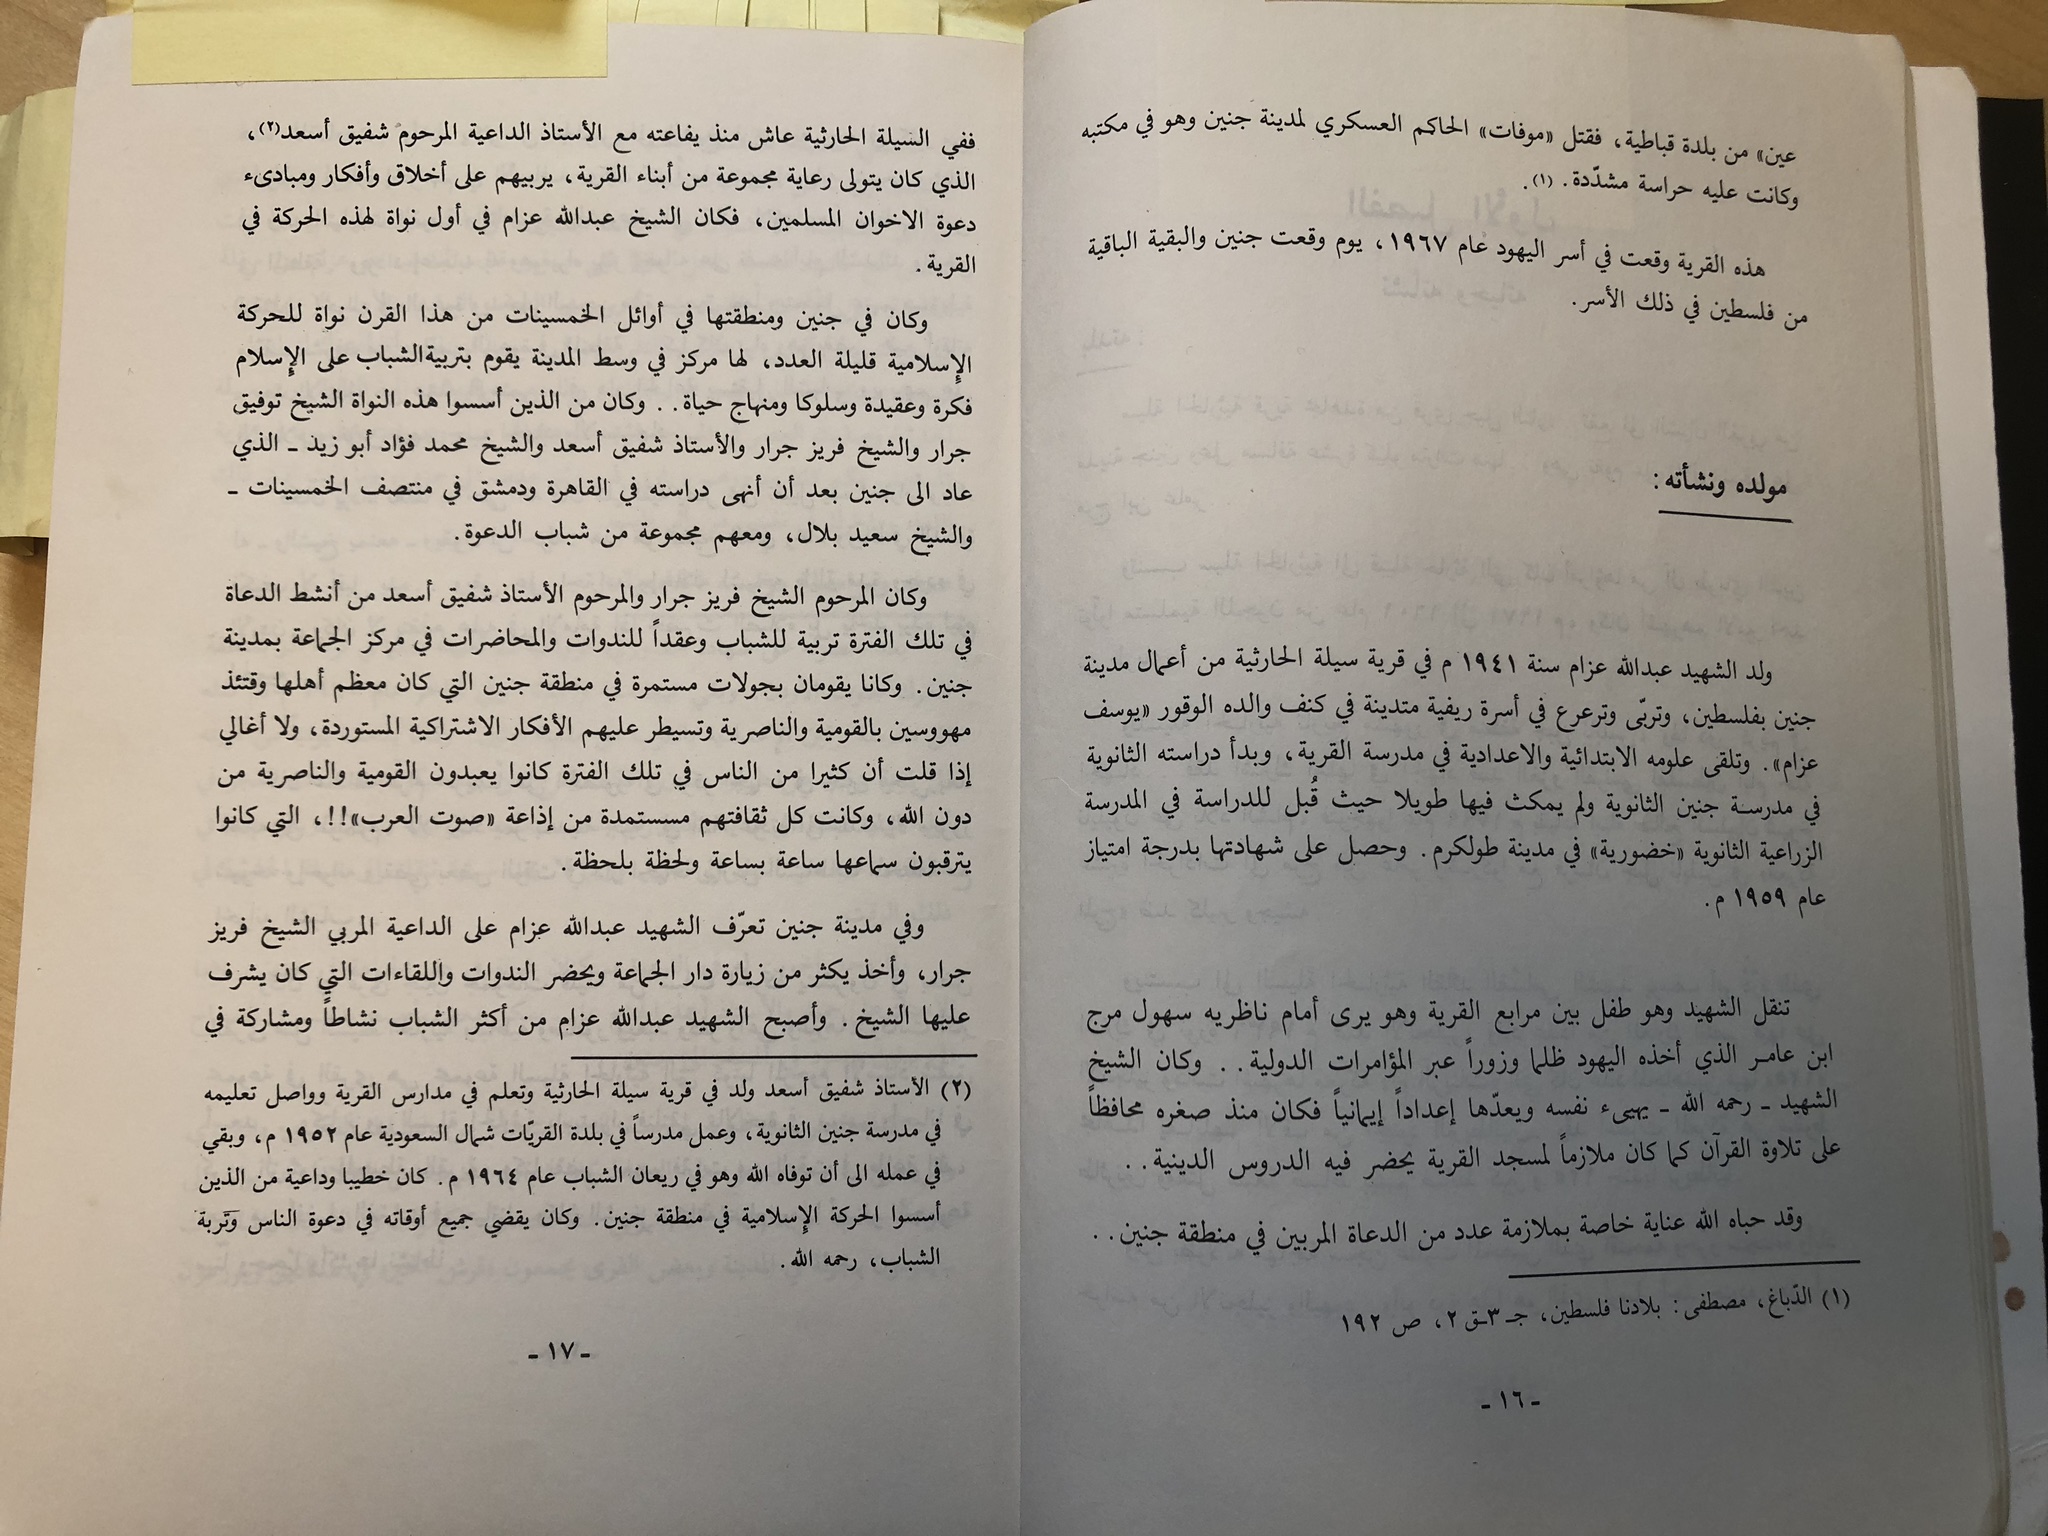 عين» من بلدة قباطية، فقتل «موفات» الحاكم العسكري لمدينة جنين وهو في مكتبه
وكانت عليه حراسة مشدّدة. (١).
هذه القرية وقعت في أسر اليهود عام ١٩٦٧، يوم وقعت جنين والبقية الباقية
من فلسطين في ذلك الأسر.
مولده ونشأته:
ولد الشهيد عبدالله عزام سنة ١٩٤١ م في قرية سيلة الحارثية من أعمال مدينة
جنين بفلسطين، وتربّى وترعرع في أسرة ريفية متدينة في كنف والده الوقور «يوسف
عزام». وتلقى علومه الابتدائية والاعدادية في مدرسة القرية، وبدأ دراسته الثانوية
في مدرسة جنين الثانوية ولم يمكث فيها طويلا حيث قُبل للدراسة في المدرسة
الزراعية الثانوية «خضورية» في مدينة طولكرم. وحصل على شهادتها بدرجة امتياز
عام ١٩٥٩ م.
تنقل الشهيد وهو طفل بين مرابع القرية وهو يرى أمام ناظريه سهول مرج
ابن عامر الذي أخذه اليهود ظلما وزوراً عبر المؤامرات الدولية.. وكان الشيخ
الشهيد ـ رحمه الله ـ يهيىء نفسه ويعدّها إعداداً إيمانياً فكان منذ صغره محافظاً
على تلاوة القرآن كما كان ملازماً لمسجد القرية يحضر فيه الدروس الدينية..
وقد حباه الله عناية خاصة بملازمة عدد من الدعاة المربين في منطقة جنين..
(١) الدّباغ، مصطفى: بلادنا فلسطين، جـ ٣ـق ٢، ص ١٩٢
ـ ١٦ ـ
ففي السيلة الحارثية عاش منذ يفاعته مع الأستاذ الداعية المرحوم شفيق أسعد(٢)،
الذي كان يتولى رعاية مجموعة من أبناء القرية، يربيهم على أخلاق وأفكار ومبادىء
دعوة الاخوان المسلمين، فكان الشيخ عبدالله عزام في أول نواة لهذه الحركة في
القرية.
وكان في جنين ومنطقتها في أوائل الخمسينات من هذا القرن نواة للحركة
الإسلامية قليلة العدد، لها مركز في وسط المدينة يقوم بتربية الشباب على الإسلام
فكرة وعقيدة وسلوكا ومنهاج حياة.. وكان من الذين أسسوا هذه النواة الشيخ توفيق
جرار والشيخ فريز جرار والأستاذ شفيق أسعد والشيخ محمد فؤاد أبو زيد ـ الذي
عاد الى جنين بعد أن أنهى دراسته في القاهرة ودمشق في منتصف الخمسينات ـ
والشيخ سعيد بلال، ومعهم مجموعة من شباب الدعوة.
وكان المرحوم الشيخ فريز جرار والمرحوم الأستاذ شفيق أسعد من أنشط الدعاة
في تلك الفترة تربية للشباب وعقداً للندوات والمحاضرات في مركز الجماعة بمدينة
جنين. وكانا يقومان بجولات مستمرة في منطقة جنين التي كان معظم أهلها وقتئذ
مهووسين بالقومية والناصرية وتسيطر عليهم الأفكار الاشتراكية المستوردة، ولا أغالي
إذا قلت أن كثيرا من الناس في تلك الفترة كانوا يعبدون القومية والناصرية من
دون الله، وكانت كل ثقافتهم مسستمدة من إذاعة «صوت العرب»!!، التي كانوا
يترقبون سماعها ساعة بساعة ولحظة بلحظة.
وفي مدينة جنين تعرّف الشهيد عبدالله عزام على الداعية المربي الشيخ فريز
جرار، وأخذ يكثر من زيارة دار الجماعة ويحضر الندوات واللقاءات التي كان يشرف
عليها الشيخ. وأصبح الشهيد عبدالله عزام من أكثر الشباب نشاطاً ومشاركة في
(٢) الأستاذ شفيق أسعد ولد في قرية سيلة الحارثية وتعلم في مدارس القرية وواصل تعليمه
في مدرسة جنين الثانوية، وعمل مدرساً في بلدة القريّات شمال السعودية عام ١٩٥٢ م، وبقي
في عمله الى أن توفاه الله وهو في ريعان الشباب عام ١٩٦٤ م. كان خطيبا وداعية من الذين
أسسوا الحركة الإسلامية في منطقة جنين. وكان يقضي جميع أوقاته في دعوة الناس وتَربة
الشباب، رحمه الله.
ـ ١٧ ـ